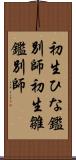 初生ひな鑑
別師初生雛
鑑別師